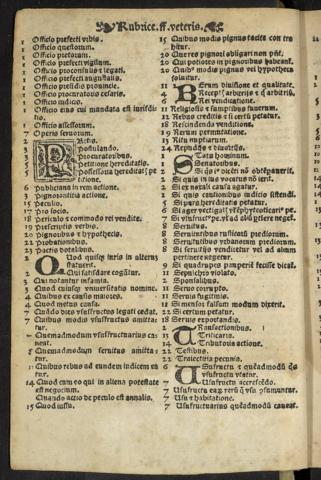 Rubrice. ff. veteris.
1 Officio prefecti vrbis.
1 Officio questorum.
1 Officio pretorum.
1 Officio prefecti vigilum.
1 Officio proconsulis & legati.
1 Officio prefecti augustalis.
1 Officio presidis prouincie.
1 Officio procuratoris cesaris.
1 Officio iuridico.
1 Officio eius cui mandata est iurisdictio.
1 Officio assessorum.
7 Operis seruorum.
2 Pactis.
3 Postulando.
3 Procuratoribus.
5 Petitione hereditatis.
5 Possessoria hereditatis petitione.
6 Publiciana in rem actione.
Pignoratitia actione.
Peculio.
17 Pro socio.
18 Periculo & commodo rei vendite.
19 Prescriptis verbis.
20 Pignoribus & hypothecis.
22 Probationibus.
23 Pactis dotalibus.
2 Quod quisq; iuris in alterum statuerit.
2 Qui satisdare cogātur.
3 Qui notantur infamia.
3 Quod cuiusq; vniuersitatis nomine.
4 Quibus ex causis maiores.
4 Quod metus causa.
7 Quādo dies vsusfructus legati cedat.
7 Quibus modis vsusfructus amittatur.
7 Quemadmodum vsusfructuarius caueat.
Quemadmodum seruitus amittatur.
11 Quibus rebus ad eundem iudicem eatur.
14 Quod cum eo qui in aliena potestate est negocium.
Quando actio de peculio est annalis.
15 Quod iussu.
15 Quibus modis pignus tacite contrahitur.
20 Que res pignori obligari non pn̄t.
20 Qui potiores in pignoribus habeant̄.
20 Quib⁹ modis pignus vel hypotheca soluitur.
Rerum diuisione & qualitate.
4 Recept⁊ arbitris & q̄ arbitriū.
6 Rei venditicatione.
11 Religiosis & sumptibus funerum.
12 Rebus creditis & si certū petatur.
18 Rescindenda venditione.
19 Rerum permutatione.
23 Ritu nuptiarum.
24 Repudijs & diuortijs.
1 Statu hominum.
1 Senatoribus.
2 Si q̄s iº diceti nō obtēperauerit.
2 Si quis in ius vocatus nō ierit.
2 Si ex noxali causa agatur.
2 Si quis cautionibus iudicio sistendi.
5 Si pars hereditatis petatur.
6 Si ager vectigal⁊
8 Seruitus.
8 Seruitutibus rusticorū prediorum.
8 Seruitutibus vrbanorum prediorum.
8 Si seruitus vendicetur vel ad alium pertinere negetur.
9 Si quadrupes pauperiē fecisse dicat̄.
11 Sepulchro violato.
Sponsalibus.
11 Seruo corrupto.
11 Seruis fugitiuis.
11 Si mensor falsum modum dixerit.
22 Si certum petatur.
18 Seruis exportandis.
2 Transactionibus.
13 Triticaria.
Tributoria actione.
22 Testibus.
22 Traiectitia pecunia.
6 Usufructu & quēadmodū q̄s vsufructu vtatur.
7 Usufructu accrescēdo.
7 Usufructu ear⁊ rerū q̄ vsu consumuntur.
7 Usu & habitatione.
7 Usufructuarius quēadmodū caueat.